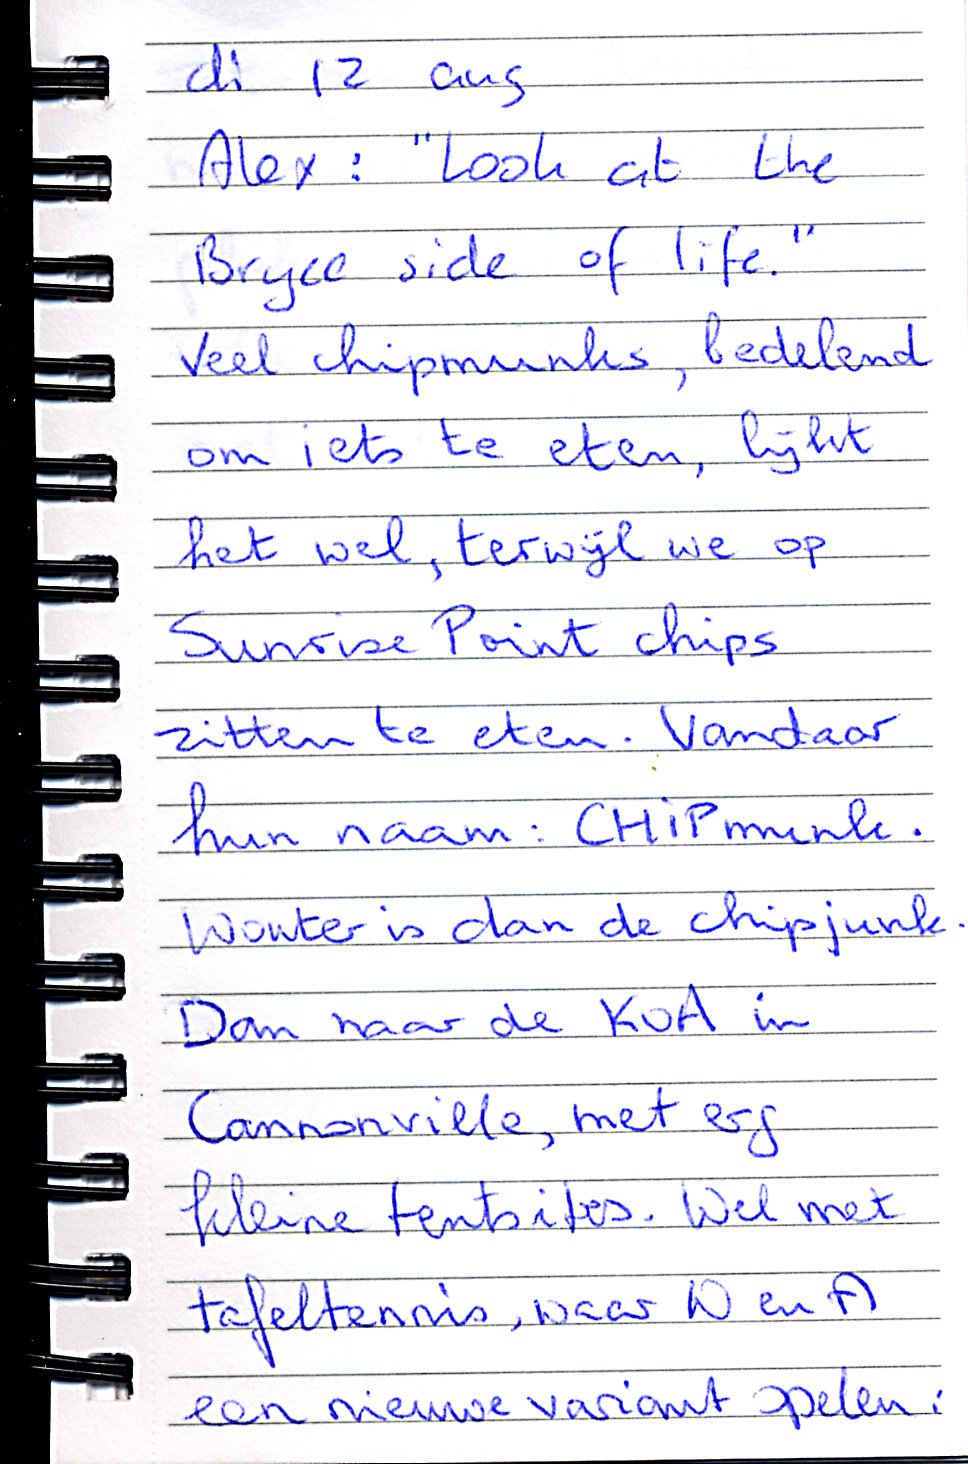 di 12 aug
Alex: "Look at the
Bryce side of life."
Veel chipmunks, bedelend
om iets te eten, lijkt
het wel, terwijl we op
Sunrise Point chips
zitten te eten. Vandaar
hun naam: CHiPmunk.
Wouter is dan de chipjunk.
Dan naar de KOA in
Cannonville, met erg
kleine tentsites. Wel met
tafeltennis, waar W en A
een nieuwe variant spelen: